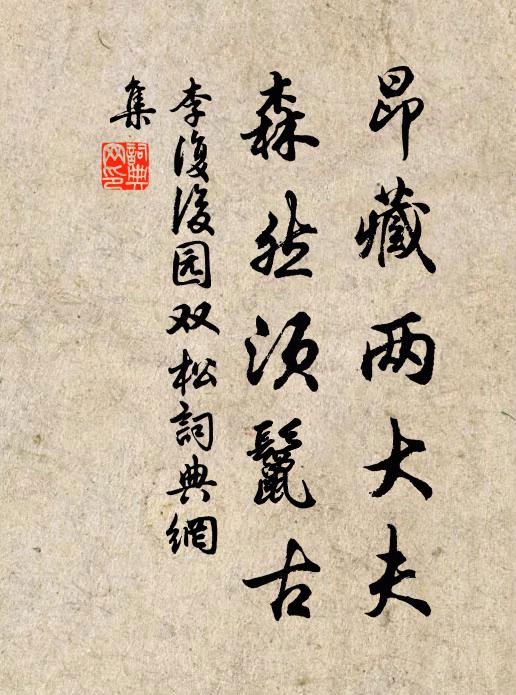 昂藏两大夫
森然须鬣古
李復後园双松詞典網
集
詞典网印